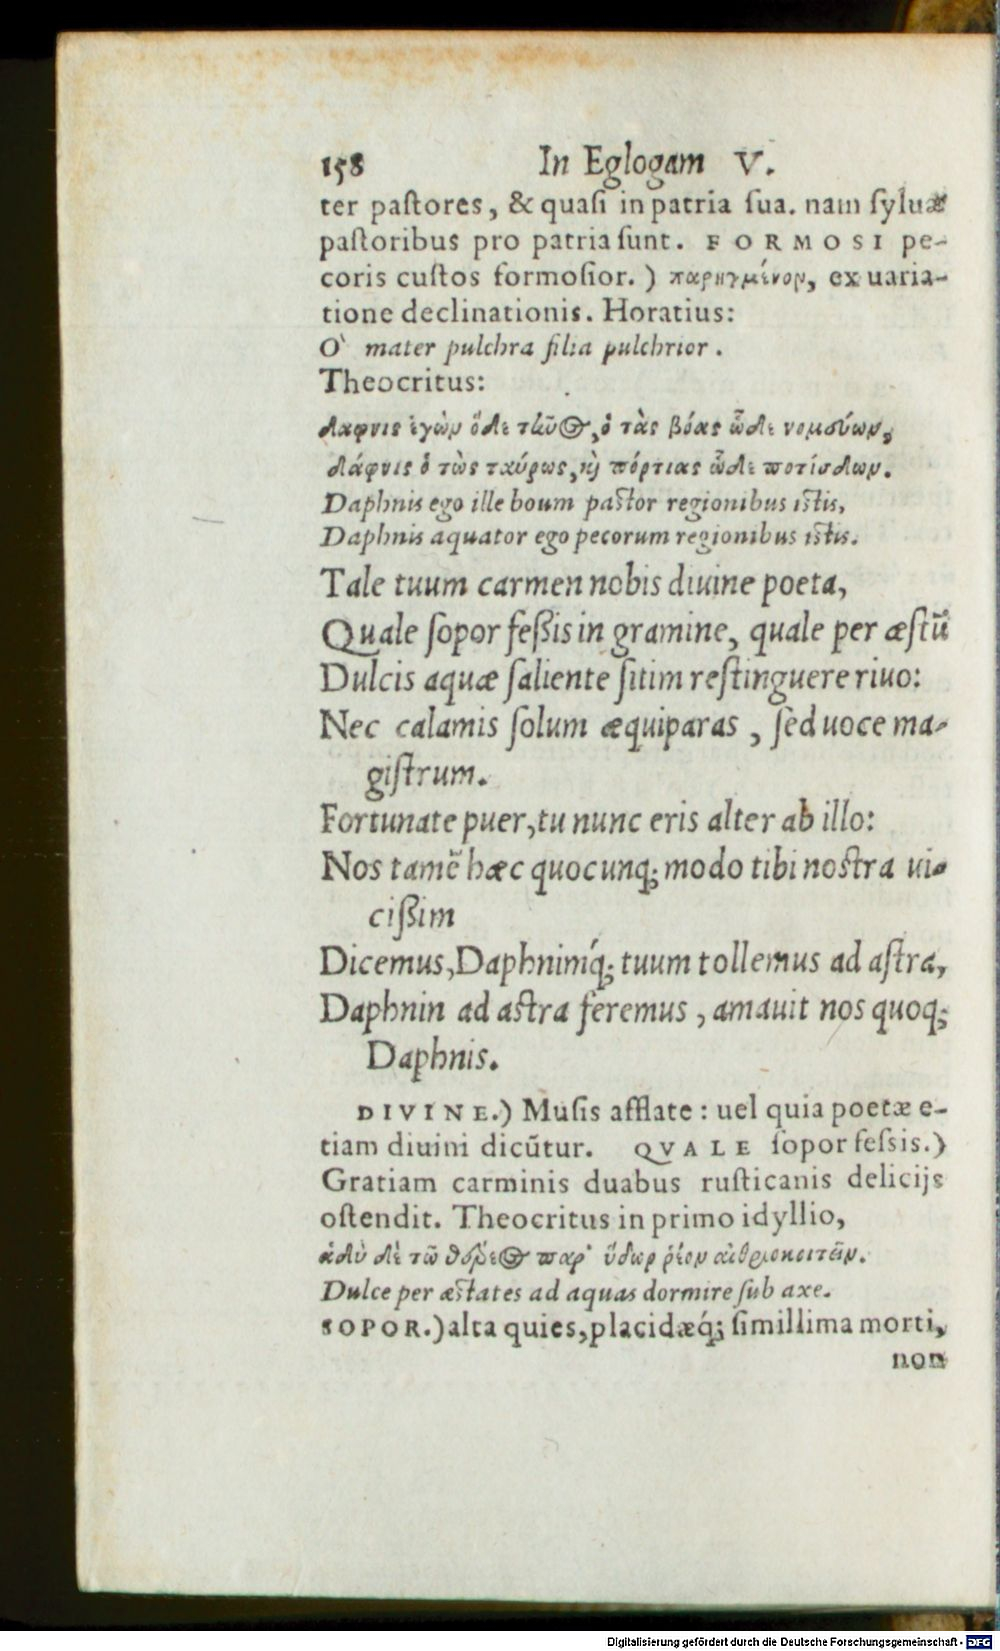 158 In Eglogam V.
ter paſtores, & quaſi in patria ſua. nam ſyluæ
paſtoribus pro patria ſunt. FORMOSI pe-
coris cuſtos formoſior.) παρηγμένον, ex uaria-
tione declinationis. Horatius:
O` mater pulchra filia pulchrior.
Theocritus:
δαφνις ἐγὼν ὅδε τῆνος, ὁ τὰς βόας ὧδε νομεύων,
δάφνις ὁ τὼς ταύρως, κὶ πόρτιας ὧδε ποτίσδων.
Daphnis ego ille boum paſtor regionibus iſtis,
Daphnis aquator ego pecorum regionibus iſtis.
Tale tuum carmen nobis diuine poeta,
Quale ſopor feßis in gramine, quale per æſtū
Dulcis aquæ ſaliente ſitim reſtinguere riuo:
Nec calamis ſolum æquiparas, ſed uoce ma-
giſtrum.
Fortunate puer, tu nunc eris alter ab illo:
Nos tamē hæc quocunq; modo tibi noſtra ui-
cißim
Dicemus, Daphnimq́; tuum tollemus ad aſtra,
Daphnin ad aſtra feremus, amauit nos quoq;
Daphnis.
DIVINE.) Muſis afflate: uel quia poetæ e-
tiam diuini dicūtur. QVALE ſopor feſsis.)
Gratiam carminis duabus ruſticanis delicijs
oſtendit. Theocritus in primo idyllio,
ἁδὺ δὲ τῶ θέρεος παρ' ὕδωρ ῥέον αἰθριοκοιτῆν.
Dulce per æſtates ad aquas dormire ſub axe.
SOPOR.) alta quies, placidæq́; ſimillima morti,
non
Digitalisierung gefördert durch die Deutsche Forschungsgemeinschaft - DFG